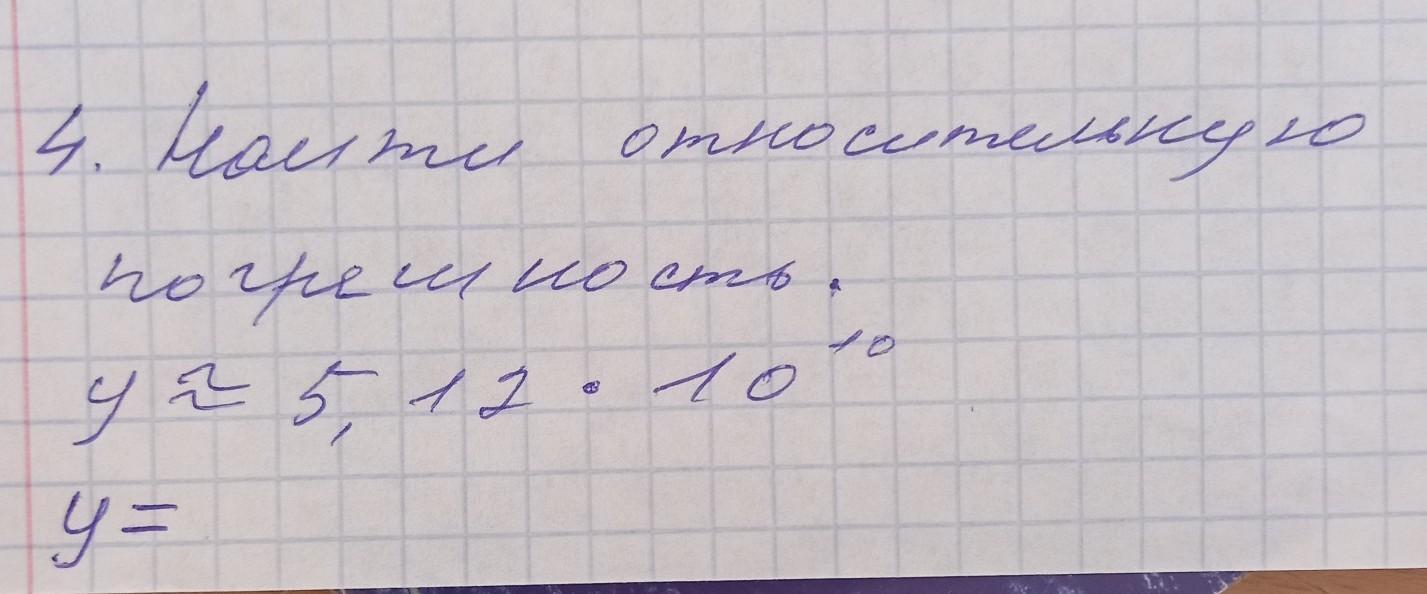 4. Найти относительную
погрешность.
y ≈ 5,12 · 10¹⁰
y =